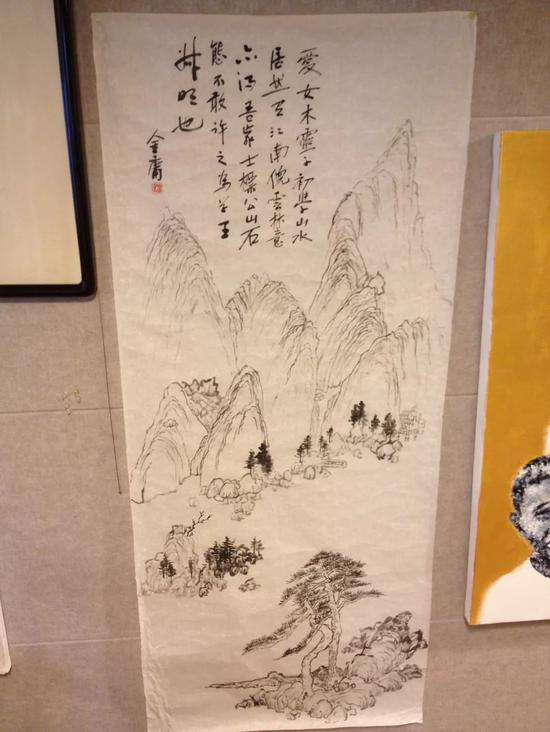 愛女木靈子初學山水
居然江南倪雲林意
亦得吾家士標公山石
態不敢許之為學王
叔明也
金庸